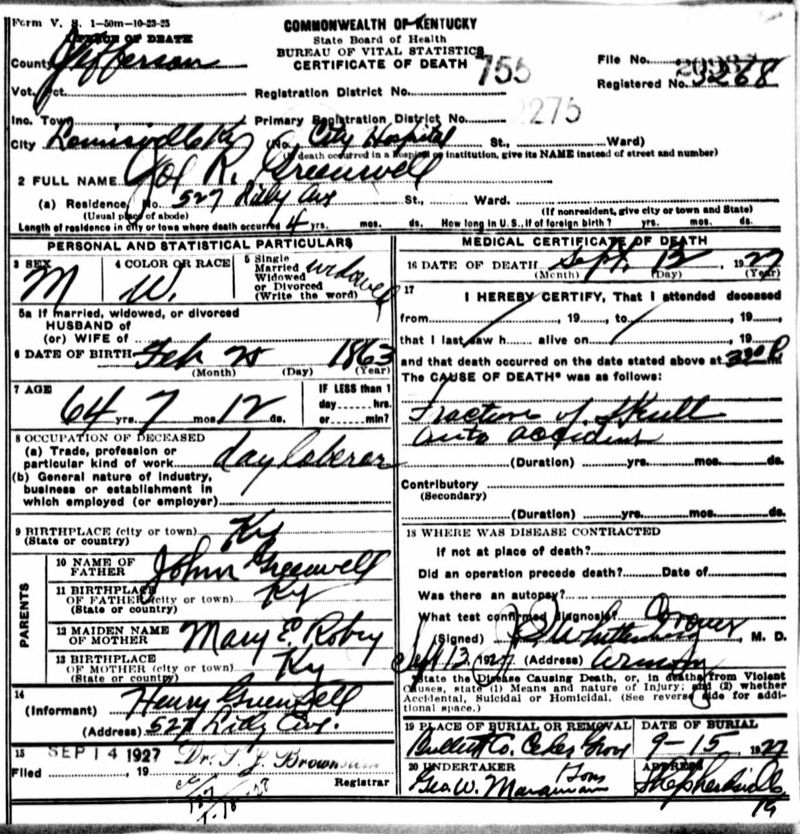 Form V. S. 1-50m-10-23-25
COMMONWEALTH OF KENTUCKY
State Board of Health
BUREAU OF VITAL STATISTICS
CERTIFICATE OF DEATH
PLACE OF DEATH
County Jefferson
File No.
Registered No. 3268
Vot. Pct.
Registration District No. 755
Inc. Town
Primary Registration District No. 2275
City Louisville Ky (No. City Hospital St., Ward)
(If death occurred in a hospital or institution, give its NAME instead of street and number)
2 FULL NAME Joe R. Greenwell
(a) Residence, No. 527 Ave St., Ward.
(Usual place of abode) (If nonresident, give city or town and State)
Length of residence in city or town where death occurred 4 yrs. mos. ds. How long in U. S., if of foreign birth? yrs. mos. ds.
PERSONAL AND STATISTICAL PARTICULARS
3 SEX M
4 COLOR OR RACE W.
5 Single Married Widowed or Divorced (Write the word) widowed
5a If married, widowed, or divorced
HUSBAND of
(or) WIFE of
6 DATE OF BIRTH Feb 20 1863
(Month) (Day) (Year)
7 AGE 64 yrs. 7 mos. 12 ds.
IF LESS than 1
day hrs.
or min?
8 OCCUPATION OF DECEASED
(a) Trade, profession or
particular kind of work day laborer
(b) General nature of industry,
business or establishment in
which employed (or employer)
9 BIRTHPLACE (city or town) Ky
(State or country)
PARENTS
10 NAME OF FATHER John Greenwell
11 BIRTHPLACE OF FATHER (city or town) Ky
(State or country)
12 MAIDEN NAME OF MOTHER Mary E. Robey
13 BIRTHPLACE OF MOTHER (city or town) Ky
(State or country)
14
(Informant) Henry Greenwell
(Address) 527 Ave.
15
Filed SEP 14 1927, 19 Dr.
Registrar
MEDICAL CERTIFICATE OF DEATH
16 DATE OF DEATH Sept. 13, 1927
(Month) (Day) (Year)
17
I HEREBY CERTIFY, That I attended deceased
from , 19 , to , 19 ,
that I last saw h alive on , 19 ,
and that death occurred on the date stated above at 330 P m.
The CAUSE OF DEATH* was as follows:
Fracture of Skull
auto accident
(Duration) yrs. mos. ds.
Contributory
(Secondary)
(Duration) yrs. mos. ds.
18 WHERE WAS DISEASE CONTRACTED
If not at place of death?
Did an operation precede death? Date of
Was there an autopsy?
What test confirmed diagnosis?
(Signed) Coroner, M. D.
Sept 13, 1927 (Address) Armory
*State the Disease Causing Death, or, in deaths from Violent
Causes, state (1) Means and nature of Injury; and (2) whether
Accidental, Suicidal or Homicidal. (See reverse side for addi-
tional space.)
19 PLACE OF BURIAL OR REMOVAL
Bullitt Co. Cedar Grove
DATE OF BURIAL
9-15 1927
20 UNDERTAKER
Geo. W. Maraman Sons
ADDRESS
Shepherdsville
Ky